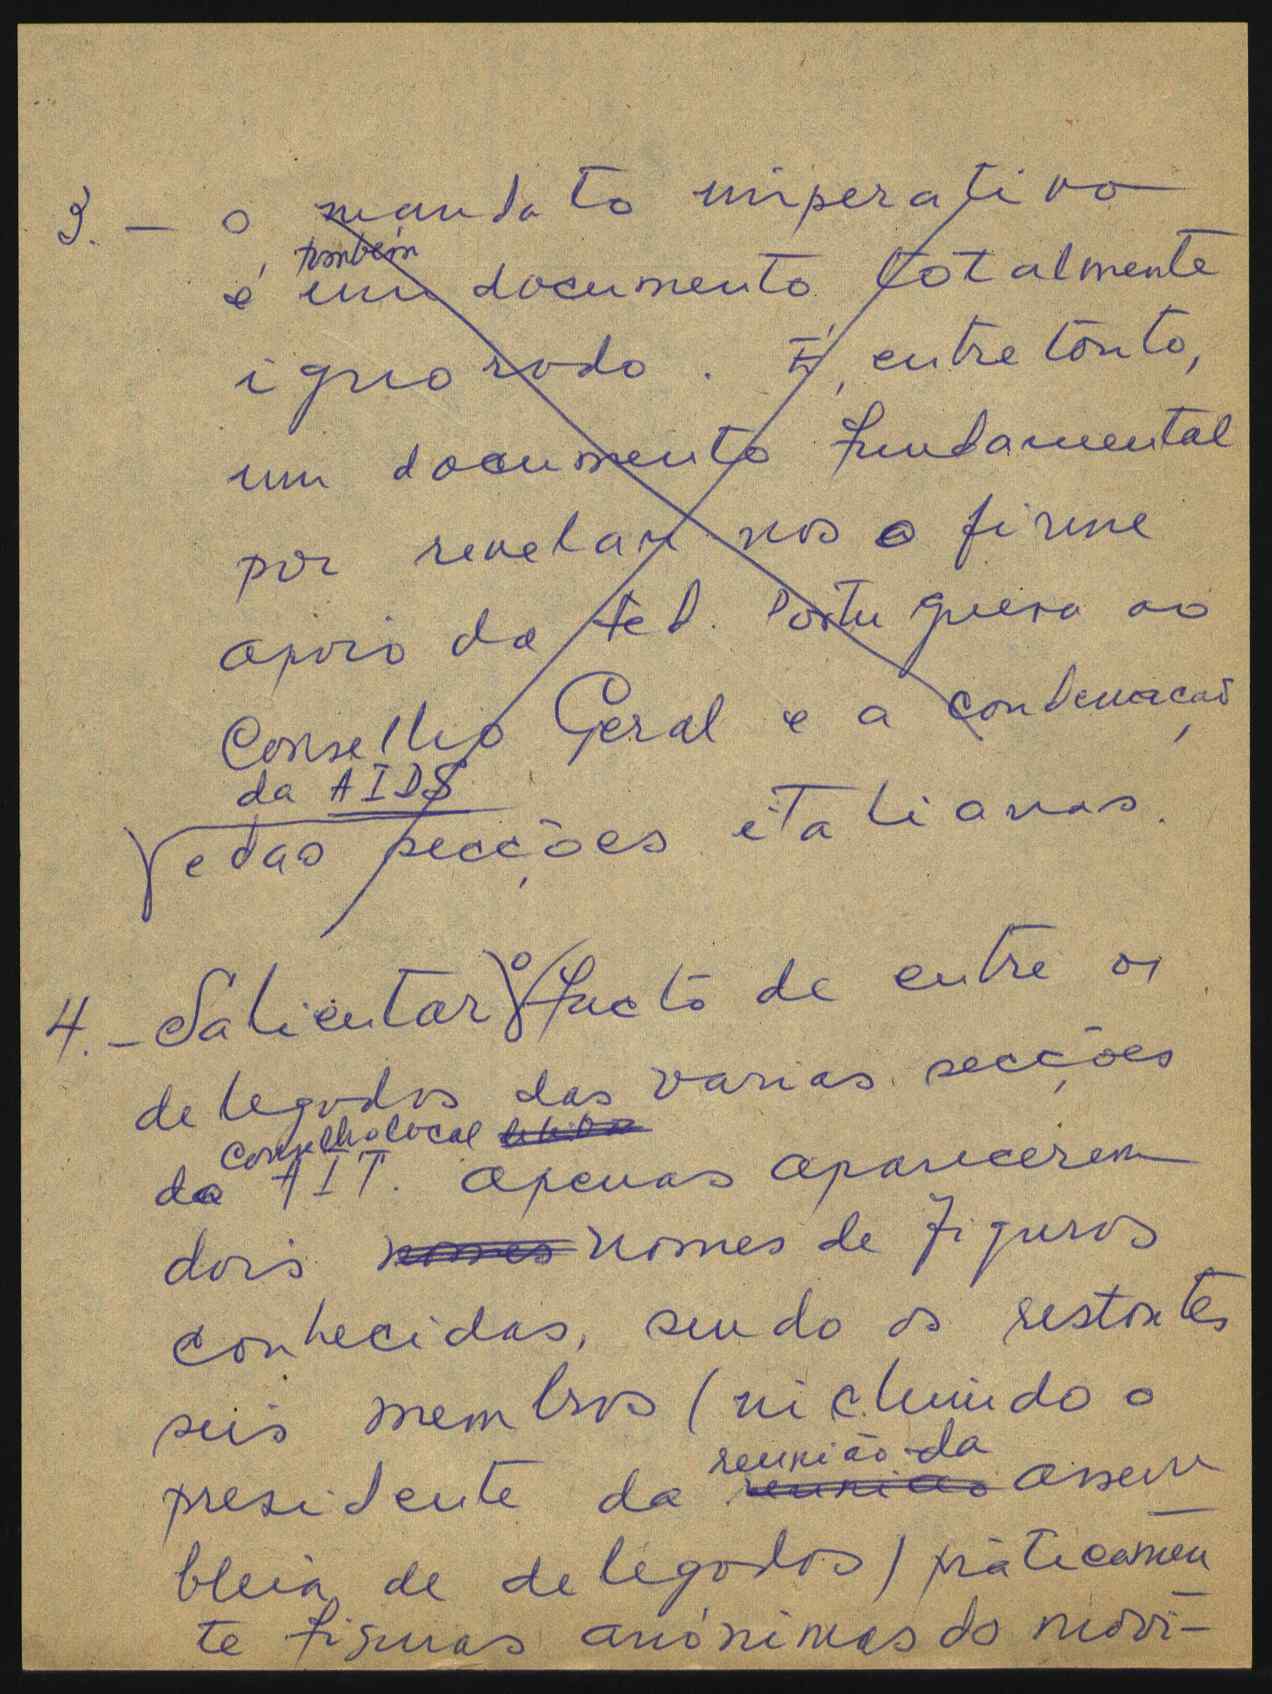 3. - o mandato imperativo
também
é um documento totalmente
ignorado. É, entretanto,
um documento fundamental
por revelar-nos o firme
apoio da Fed. Portuguesa ao
Conselho Geral e a condenação
da AIDS
e das secções italianas.
4. - Salientar o facto de entre os
delegados das varias secções
Conselho local
da AIT. apenas aparecerem
dois nomes nomes de figuras
conhecidas, sendo os restantes
seis membros (incluindo o
reunião da
presidente da reunião assem
bleia de delegados) práticamen
te figuras anónimas do movi-